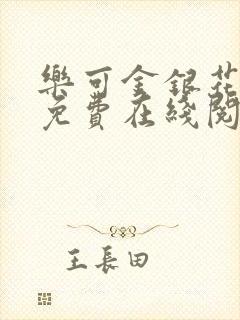 樂可金銀花
免費在綫閱
王長田